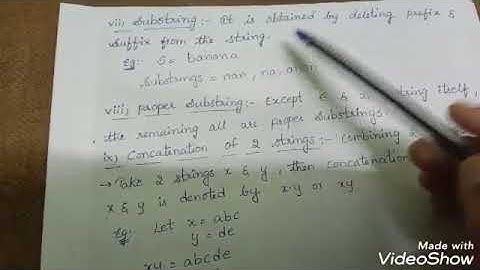 vii) Substring:- It is obtained by deleting prefix &
suffix from the string.
Eg:- S = banana
Substrings = nan, na, an,
viii) proper Substring:- Except ε & string itself,
the remaining all are proper Substrings.
ix) Concatenation of 2 strings:- Combining
→ Take 2 strings x & y, then concatenation
x & y is denoted by x·y or xy
Eg:- Let x = abc
y = de
xy = abcde
Made with
VideoShow